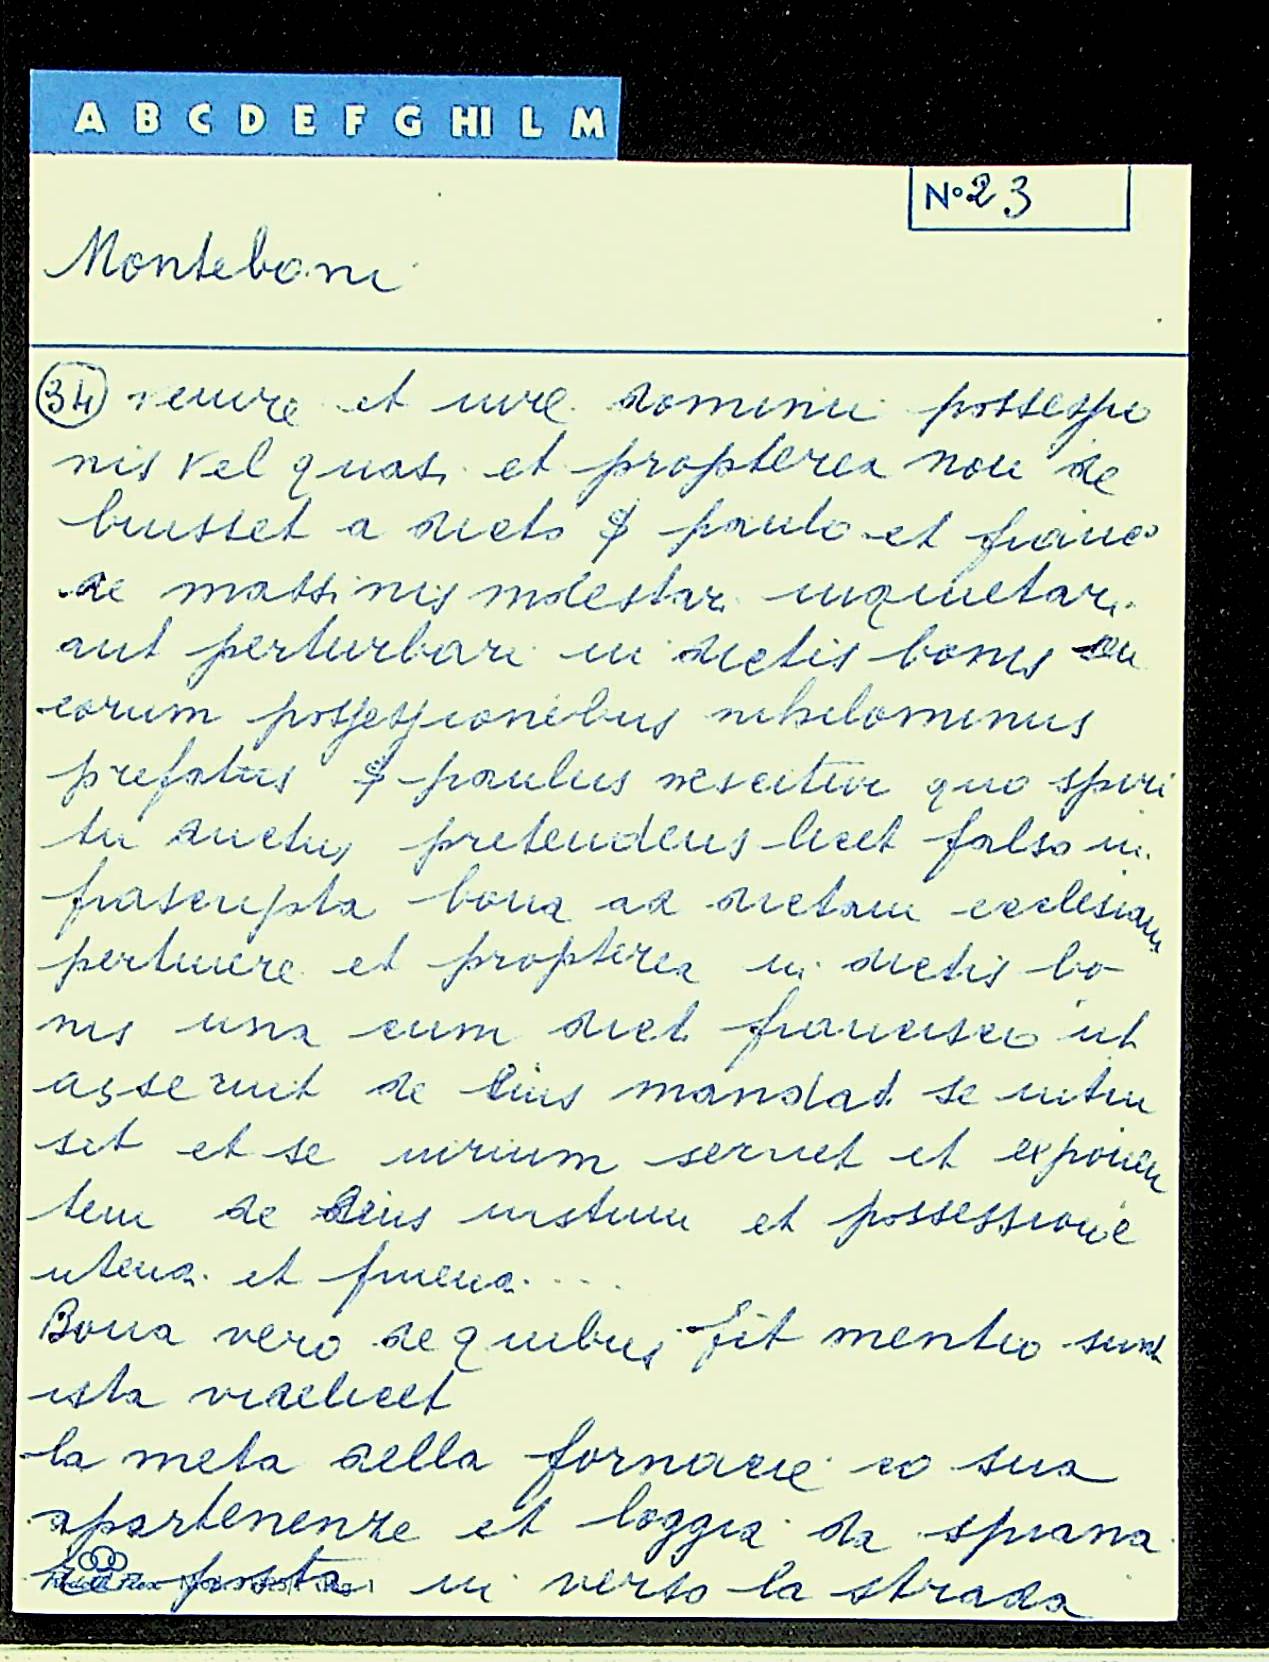 A B C D E F G HI L M
N° 23
Monteboni
34 et iure dominii possessio
nis vel quasi et propterea non de
buisset a dicto $ paulo et franco
de massinis molestari inquietari
aut perturbari in dictis bonis
eorum possessionibus nihilominus
prefatus $ paulus nescitur quo spiri
tu ductus pretendens licet falso in
frascripta bona ad dictam ecclesiam
pertinere et propterea in dictis bo-
nis una cum dict francisco ut
asseruit de eius mandat se intru
sit et se servet et exponen
tem de eius et possessione
et
Bona vero de quibus fit mentio sunt
ista videlicet
la meta della fornacie co sua
apartenenze et loggia da spiana
posta in verso la strada